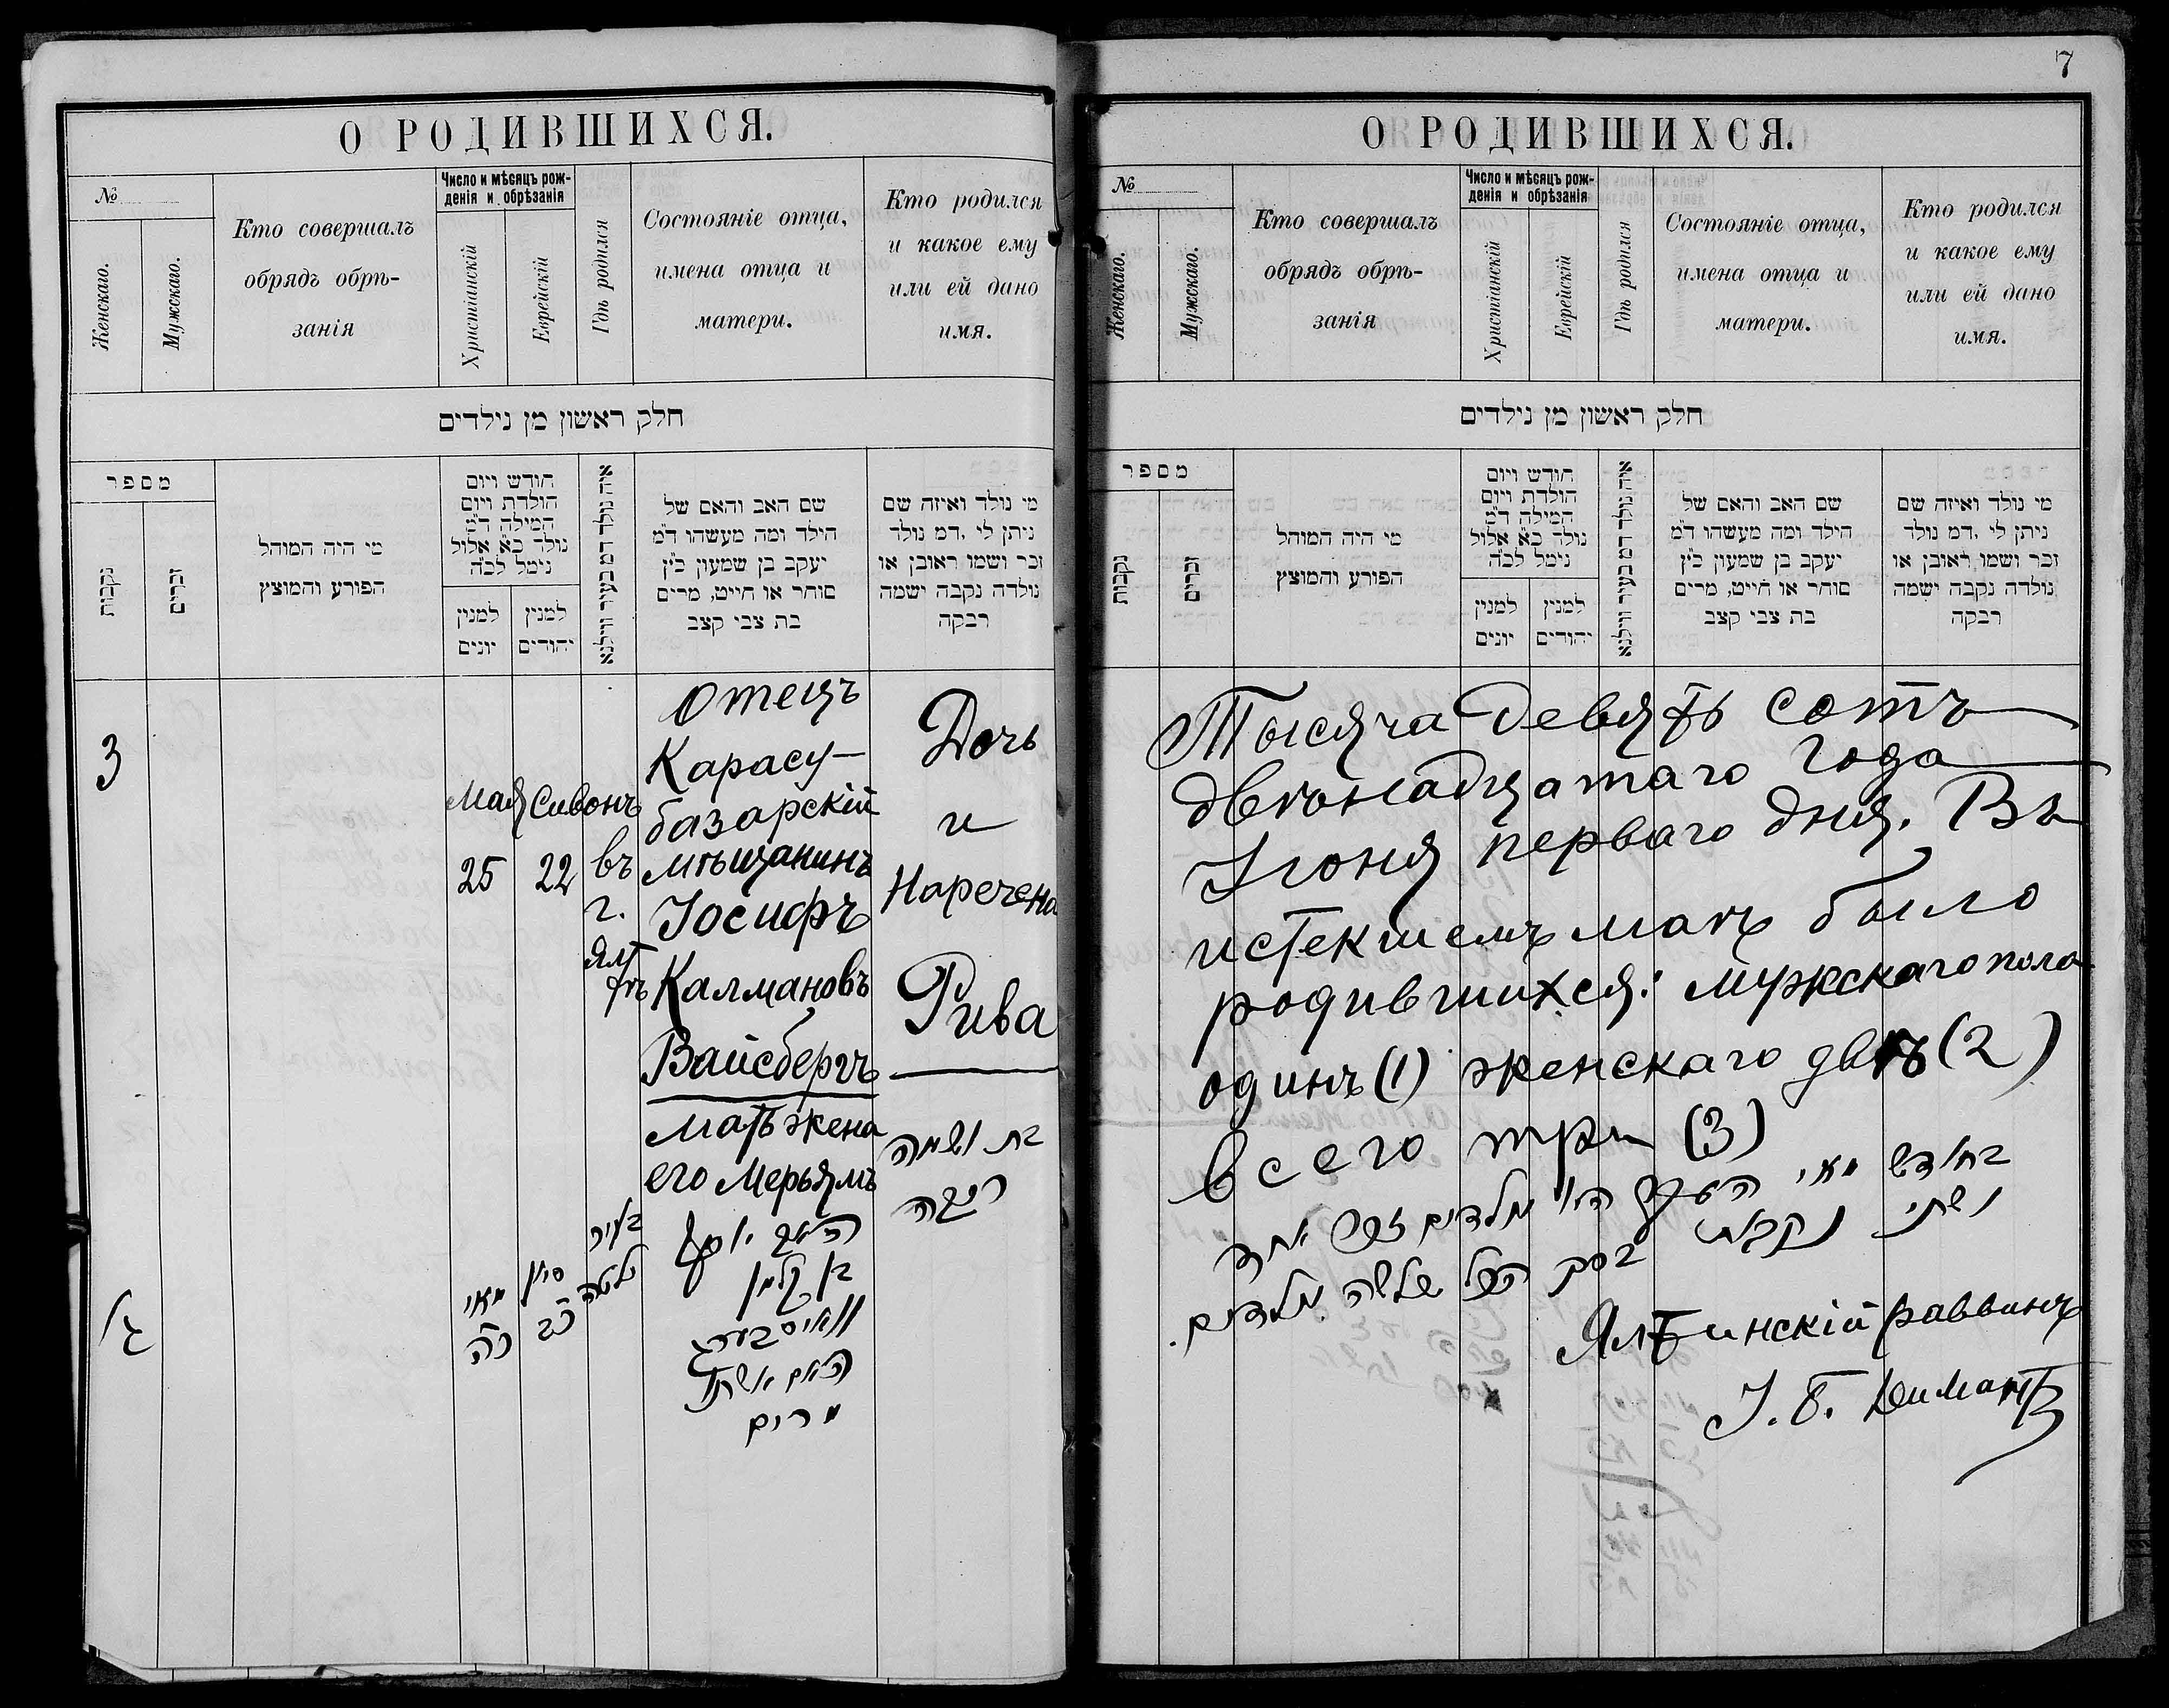 О РОДИВШИХСЯ.
№
Женскаго.
Мужскаго.
Кто совершалъ
обрядъ обрѣ-
занія
Число и мѣсяцъ рож-
денія и обрѣзанія
Христіанскій
Еврейскій
Гдѣ родился
Состояніе отца,
имена отца и
матери.
Кто родился
и какое ему
или ей дано
имя.
חלק ראשון מן נילדים
מספר
נקבות
זכרים
מי היה המוהל
הפורע והמוצץ
חודש ויום
הולדת ויום
המילה ד"מ
נולד כ"א אלול
נימל לכ"ה
למנין
יונים
למנין
יהודים
איה נולד דמ בעיר ווילנא
שם האב והאם של
הילד ומה מעשהו ד"מ
יעקב בן שמעון כ"ץ
סוחר או חייט, מרים
בת צבי קצב
מי נולד ואיזה שם
ניתן לי, דמ נולד
זכר ושמו ראובן או
נולדה נקבה ישמה
רבקה
3
Мая
25
Сивонъ
22
въ
г.
Ял
тѣ
Отецъ
Карасу-
базарскій
мѣщанинъ
Іосифъ
Калмановъ
Вайсбергъ
Мать жена
его Мерьямъ
Дочь
и
Наречена
Рива
ג
מאי
כה
סיון
כב
בעיר
ילטה
האב יוסף
בן קלמן
ווייסבערג
האם אשתו
מרים
בת ושמה
ריבה
7
О РОДИВШИХСЯ.
№
Женскаго.
Мужскаго.
Кто совершалъ
обрядъ обрѣ-
занія
Число и мѣсяцъ рож-
денія и обрѣзанія
Христіанскій
Еврейскій
Гдѣ родился
Состояніе отца,
имена отца и
матери.
Кто родился
и какое ему
или ей дано
имя.
חלק ראשון מן נילדים
מספר
נקבות
זכרים
מי היה המוהל
הפורע והמוצץ
חודש ויום
הולדת ויום
המילה ד"מ
נולד כ"א אלול
נימל לכ"ה
למנין
יונים
למנין
יהודים
איה נולד דמ בעיר ווילנא
שם האב והאם של
הילד ומה מעשהו ד"מ
יעקב בן שמעון כ"ץ
סוחר או חייט, מרים
בת צבי קצב
מי נולד ואיזה שם
ניתן לי, דמ נולד
זכר ושמו ראובן או
נולדה נקבה ישמה
רבקה
Тысяча девять сотъ
двѣнадцатаго года
Іюня перваго дня. Въ
истекшемъ маѣ было
родившихся: мужскаго пола
одинъ (1) женскаго двѣ (2)
всего три (3)
בחודש מאי היו נולדים זכר אחד
ושתי נקבות בסך הכל שלשה נולדים.
Ялтинскій раввинъ
І. Б. Димантъ